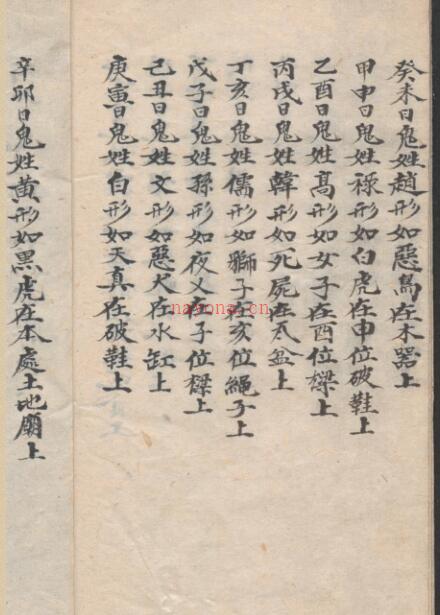 癸未日鬼姓趙形如惡鳥在木器上
甲申日鬼姓祿形如白虎在申位破鞋上
乙酉日鬼姓高形如女子在酉位樑上
丙戌日鬼姓韓形如死屍在瓦盆上
丁亥日鬼姓儒形如獅子在亥位繩子上
戊子日鬼姓孫形如夜叉在子位樑上
己丑日鬼姓文形如惡犬在水缸上
庚寅日鬼姓白形如天真在破鞋上
辛卯日鬼姓黃形如黑虎在本處土地廟上
nayona.cn